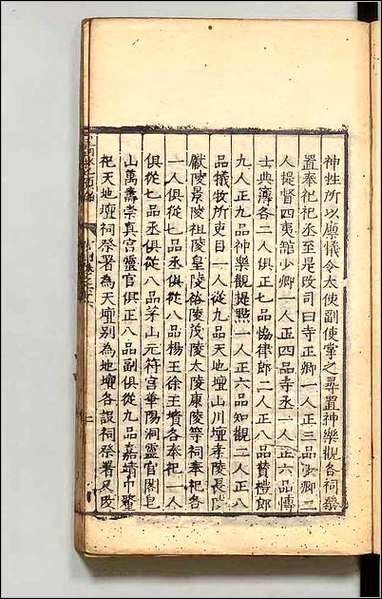 神牲所以廪犧令大使副使掌之尋置神樂觀各祠祭
置奉祀祀丞至是改司曰寺正卿一人正三品少卿二
人提督四夷館少卿一人正四品寺丞二人正六品博
士典簿各二人俱正七品協律郎二人正八品贊禮郎
九人正九品神樂觀提點一人正六品知觀二人正八
品犧牧所吏目一人從九品天地壇山川壇孝陵長陵
獻陵景陵祖陵皇陵裕陵茂陵太陵康陵等祠奉祀各
一人俱從七品丞俱從八品楊王徐王墳各奉祀一人
俱從七品丞俱從八品茅山元符宮華陽洞靈官閣皂
山萬壽崇真宮靈官俱正八品副俱從九品嘉靖中釐
祀天地壇祠祭署為天壇別為地壇各設祠祭署又陵